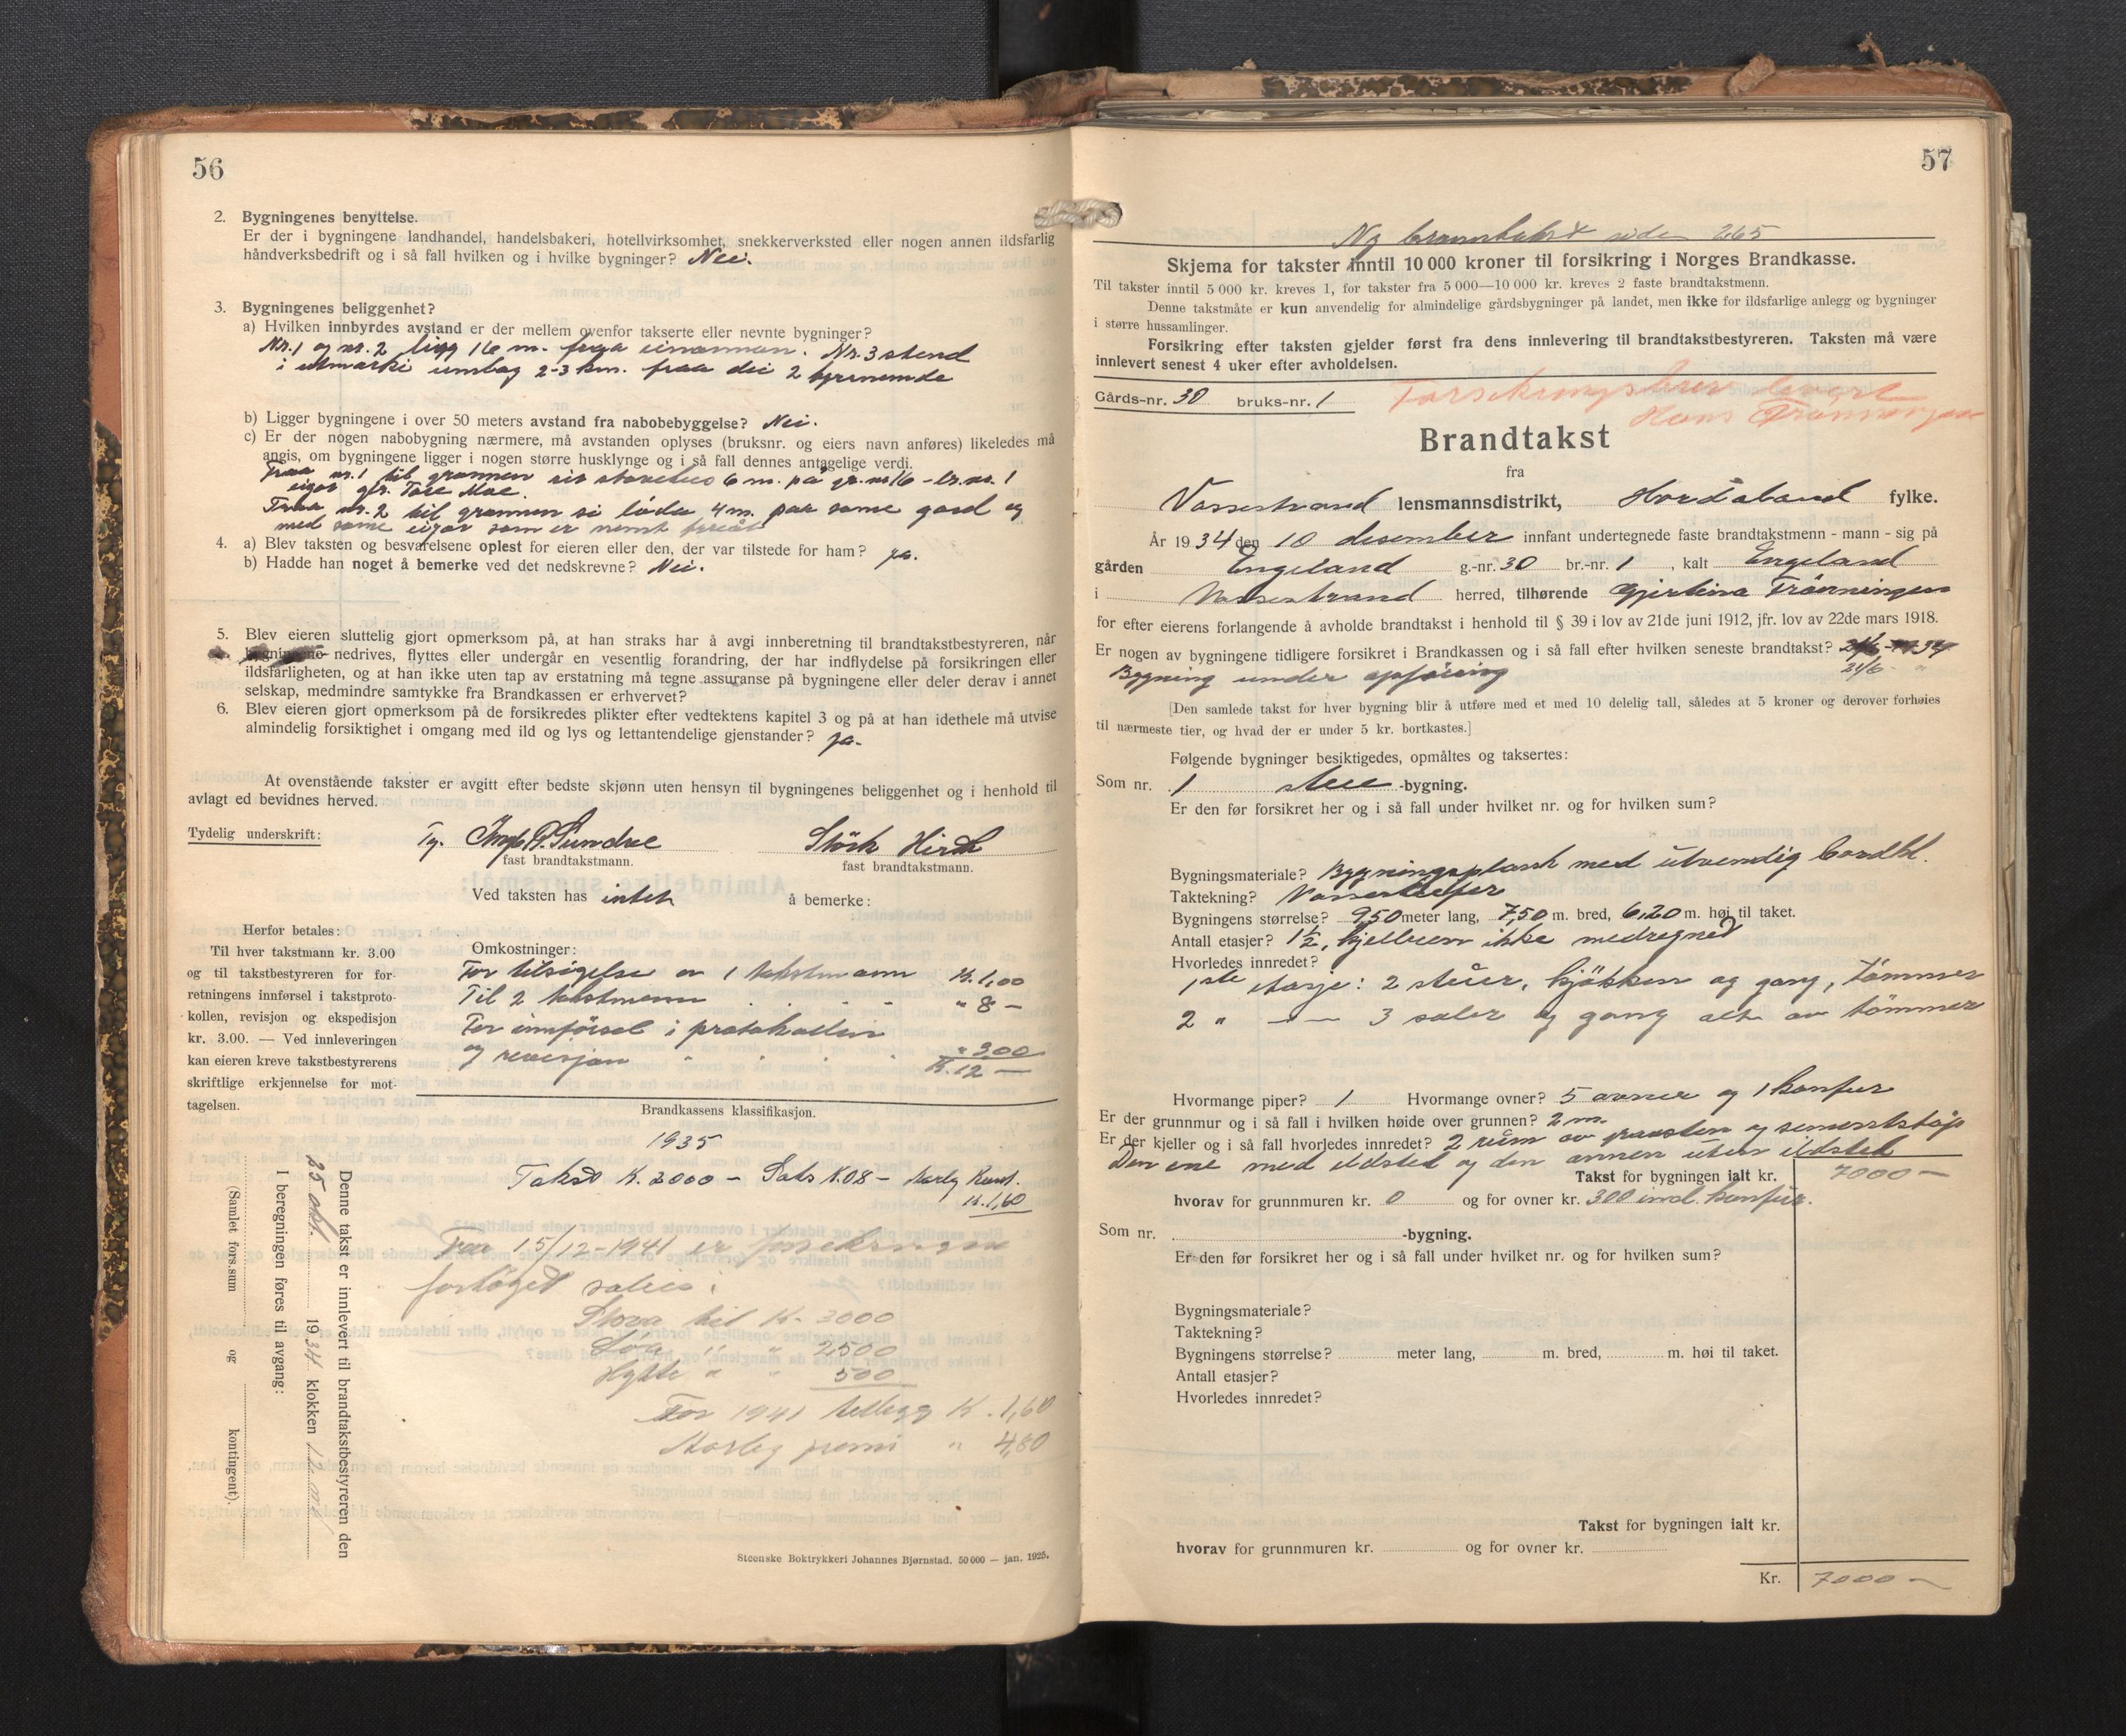 56
2. Bygningenes benyttelse.
Er der i bygningene landhandel, handelsbakeri, hotellvirksomhet, snekkerverksted eller nogen annen ildsfarlig
håndverksbedrift og i så fall hvilken og i hvilke bygninger? Nei.
3. Bygningenes beliggenhet?
a) Hvilken innbyrdes avstand er der mellem ovenfor takserte eller nevnte bygninger?
Nr. 1 og nr. 2 ligg 16 m. fraa einannan. Nr. 3 stend
i utmarki umlag 2-3 km. fraa dei 2 fyrrnemde
b) Ligger bygningene i over 50 meters avstand fra nabobebyggelse? Nei.
c) Er der nogen nabobygning nærmere, må avstanden oplyses (bruksnr. og eiers navn anføres) likeledes må
angis, om bygningene ligger i nogen større husklynge og i så fall dennes antagelige verdi.
Fraa nr. 1 til grannen sin stovehus 6 m. på gr. nr. 16 - br. nr. 1
eigar Tore Moe.
Fraa nr. 2 til grannen si löda 4 m. paa same gard og
med same eigar som er nemnt
4. a) Blev taksten og besvarelsene oplest for eieren eller den, der var tilstede for ham? ja.
b) Hadde han noget å bemerke ved det nedskrevne? Nei.
5. Blev eieren sluttelig gjort opmerksom på, at han straks har å avgi innberetning til brandtakstbestyreren, når
bygningene nedrives, flyttes eller undergår en vesentlig forandring, der har indflydelse på forsikringen eller
ildsfarligheten, og at han ikke uten tap av erstatning må tegne assuranse på bygningene eller deler derav i annet
selskap, medmindre samtykke fra Brandkassen er erhvervet?
6. Blev eieren gjort opmerksom på de forsikredes plikter efter vedtektens kapitel 3 og på at han idethele må utvise
almindelig forsiktighet i omgang med ild og lys og lettantendelige gjenstander? ja.
At ovenstående takster er avgitt efter bedste skjønn uten hensyn til bygningenes beliggenhet og i henhold til
avlagt ed bevidnes herved.
Tydelig underskrift:
Sundve
fast brandtakstmann.
Hirth
fast brandtakstmann.
Ved taksten has intet å bemerke:
Herfor betales:
Til hver takstmann kr. 3.00
og til takstbestyreren for for-
retningens innførsel i takstproto-
kollen, revisjon og ekspedisjon
kr. 3.00. — Ved innleveringen
kan eieren kreve takstbestyrerens
skriftlige erkjennelse for mot-
tagelsen.
Omkostninger:
For tilsigelse av 1 takstmann K. 1,00
Til 2 takstmenn " 8 —
For innförsel i protokollen
og revisjon " 3,00
K. 12 —
Brandkassens klassifikasjon.
1935
Takst K. 2000 — Sats K. 08 — Aarleg Kont.
K. 1,60
Fraa 15/12-1941 er forsikringa
forhöget soleis:
Stova til K. 3000
Löa " " 2500
Hytte " " 500
For 1941 tillegg K. 1,60
Aarleg premi " 4,80
Denne takst er innlevert til brandtakstbestyreren den
25 okt. 1934 klokken 12
I beregningen føres til avgang:
(Samlet fors.sum og kontingent).
Steenske Boktrykkeri Johannes Bjørnstad. 50 000 — jan. 1925.
57
Ny branntakst side 265
Skjema for takster inntil 10 000 kroner til forsikring i Norges Brandkasse.
Til takster inntil 5 000 kr. kreves 1, for takster fra 5 000—10 000 kr. kreves 2 faste brandtakstmenn.
Denne takstmåte er kun anvendelig for almindelige gårdsbygninger på landet, men ikke for ildsfarlige anlegg og bygninger
i større hussamlinger.
Forsikring efter taksten gjelder først fra dens innlevering til brandtakstbestyreren. Taksten må være
innlevert senest 4 uker efter avholdelsen.
Gårds-nr. 30 bruks-nr. 1
Forsikringsbrev levert
Hans Trönningen
Brandtakst
fra
Vossestrand lensmannsdistrikt, Hordaland fylke.
År 1934 den 10 desember innfant undertegnede faste brandtakstmenn - mann - sig på
gården Engeland g.-nr. 30 br.-nr. 1, kalt Engeland
i Vossestrand herred, tilhørende Gjertina Trönningen
for efter eierens forlangende å avholde brandtakst i henhold til § 39 i lov av 21de juni 1912, jfr. lov av 22de mars 1918.
Er nogen av bygningene tidligere forsikret i Brandkassen og i så fall efter hvilken seneste brandtakst?
Bygning under opföring 21/6 - "
[Den samlede takst for hver bygning blir å utføre med et med 10 delelig tall, således at 5 kroner og derover forhøies
til nærmeste tier, og hvad der er under 5 kr. bortkastes.]
Følgende bygninger besiktigedes, opmåltes og taksertes:
Som nr. 1 stue -bygning.
Er den før forsikret her og i så fall under hvilket nr. og for hvilken sum?
Bygningsmateriale? Bygningsplank med utvendig bordkl.
Taktekning? Vosseskifer
Bygningens størrelse? 9,50 meter lang, 7,50 m. bred, 6,20 m. høi til taket.
Antall etasjer? 1½, kjelleren ikke medregned
Hvorledes innredet?
1ste etasje: 2 stuer, kjökken og gang, tömmer
2 " — — 3 saler og gang alt av tömmer
Hvormange piper? 1 Hvormange ovner? 5 ovner og 1 komfur
Er der grunnmur og i så fall i hvilken høide over grunnen? 2 m.
Er der kjeller og i så fall hvorledes innredet? 2 rum av graasten og sementstöip
Den ene med ildsted og den annen uten ildsted
Takst for bygningen ialt kr. 7000 —
hvorav for grunnmuren kr. 0 og for ovner kr. 300 incl. komfur.
Som nr. -bygning.
Er den før forsikret her og i så fall under hvilket nr. og for hvilken sum?
Bygningsmateriale?
Taktekning?
Bygningens størrelse? meter lang, m. bred, m. høi til taket.
Antall etasjer?
Hvorledes innredet?
Takst for bygningen ialt kr.
hvorav for grunnmuren kr. og for ovner kr.
Kr. 7000 —